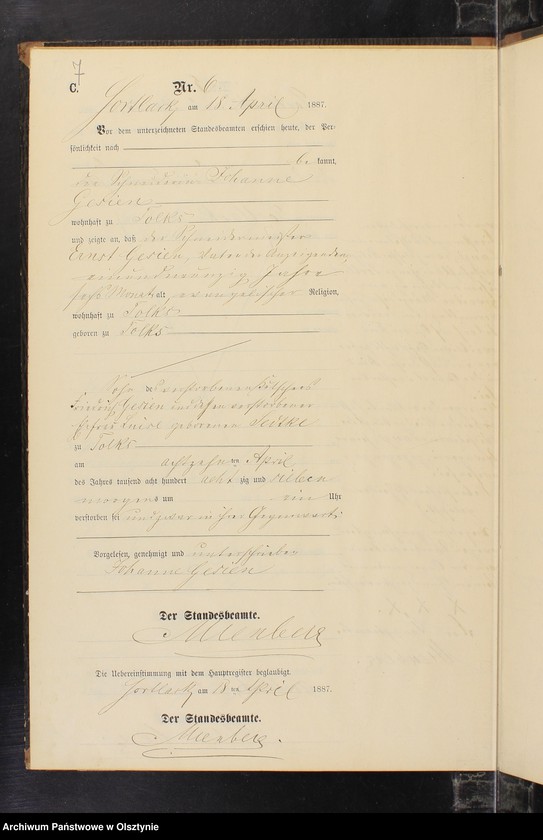 7
C. Nr. 6
Sortlack am 18 April 1887.
Vor dem unterzeichneten Standesbeamten erschien heute, der Per-
sönlichkeit nach
be kannt,
die Johanne
Gerien
wohnhaft zu Tolks
und zeigte an, daß der Schneidermeister
Ernst Gerien, Vater der Anzeigenden,
Jahre
sechs Monat alt, evangelischer Religion,
wohnhaft zu Tolks
geboren zu Tolks
Sohn des verstorbenen
Friedrich Gerien und dessen verstorbener
Ehefrau Luise geborenen
zu Tolks
am achtzehnten April
des Jahres tausend acht hundert achtzig und sieben
morgens um ein Uhr
verstorben sei und zwar in ihrer Gegenwart.
Vorgelesen, genehmigt und unterschrieben
Johanne Gerien
Der Standesbeamte.
Die Uebereinstimmung mit dem Hauptregister beglaubigt.
Sortlack am 18ten April 1887.
Der Standesbeamte.
Archiwum Państwowe w Olsztynie